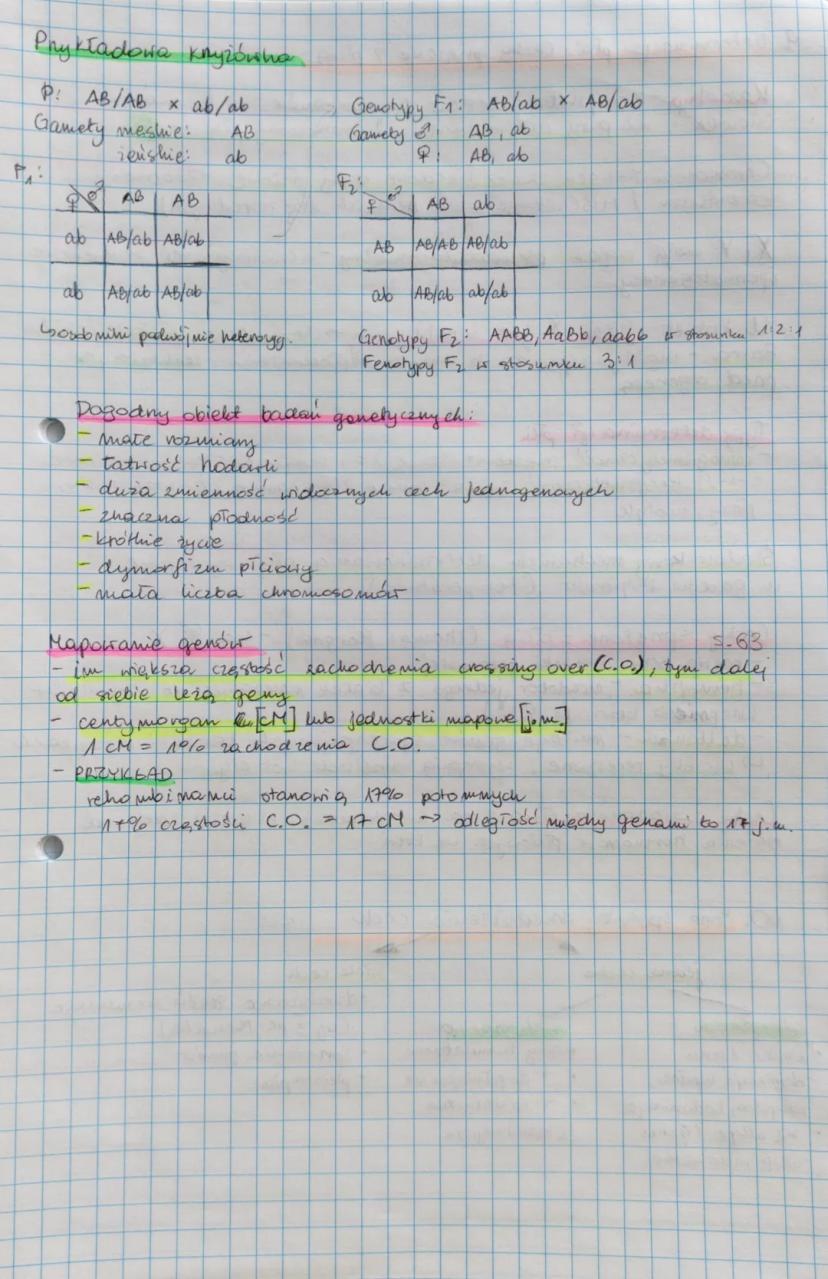 Przykładowa krzyżówka
P: AB/AB × ab/ab
Gamety męskie: AB
żeńskie: ab
F1:
♀ ♂ AB AB
ab AB/ab AB/ab
ab AB/ab AB/ab
↳osobniki podwójnie heterozyg.
Genotypy F1: AB/ab × AB/ab
Gamety ♂: AB, ab
♀: AB, ab
F2:
♀ ♂ AB ab
AB AB/AB AB/ab
ab AB/ab ab/ab
Genotypy F2: AABB, AaBb, aabb w stosunku 1:2:1
Fenotypy F2 w stosunku 3:1
Dogodny obiekt badań genetycznych:
- małe rozmiary
- łatwość hodowli
- duża zmienność widocznych cech jednogenowych
- znaczna płodność
- krótkie życie
- dymorfizm płciowy
- mała liczba chromosomów
Mapowanie genów s. 63
- im większa częstość zachodzenia crossing over (C.O.), tym dalej
od siebie leżą geny
- centymorgan [cM] lub jednostki mapowe [j.m.]
1 cM = 1% zachodzenia C.O.
- PRZYKŁAD
rekombinanci stanowią 17% potomnych
17% częstości C.O. = 17 cM → odległość między genami to 17 j.m.